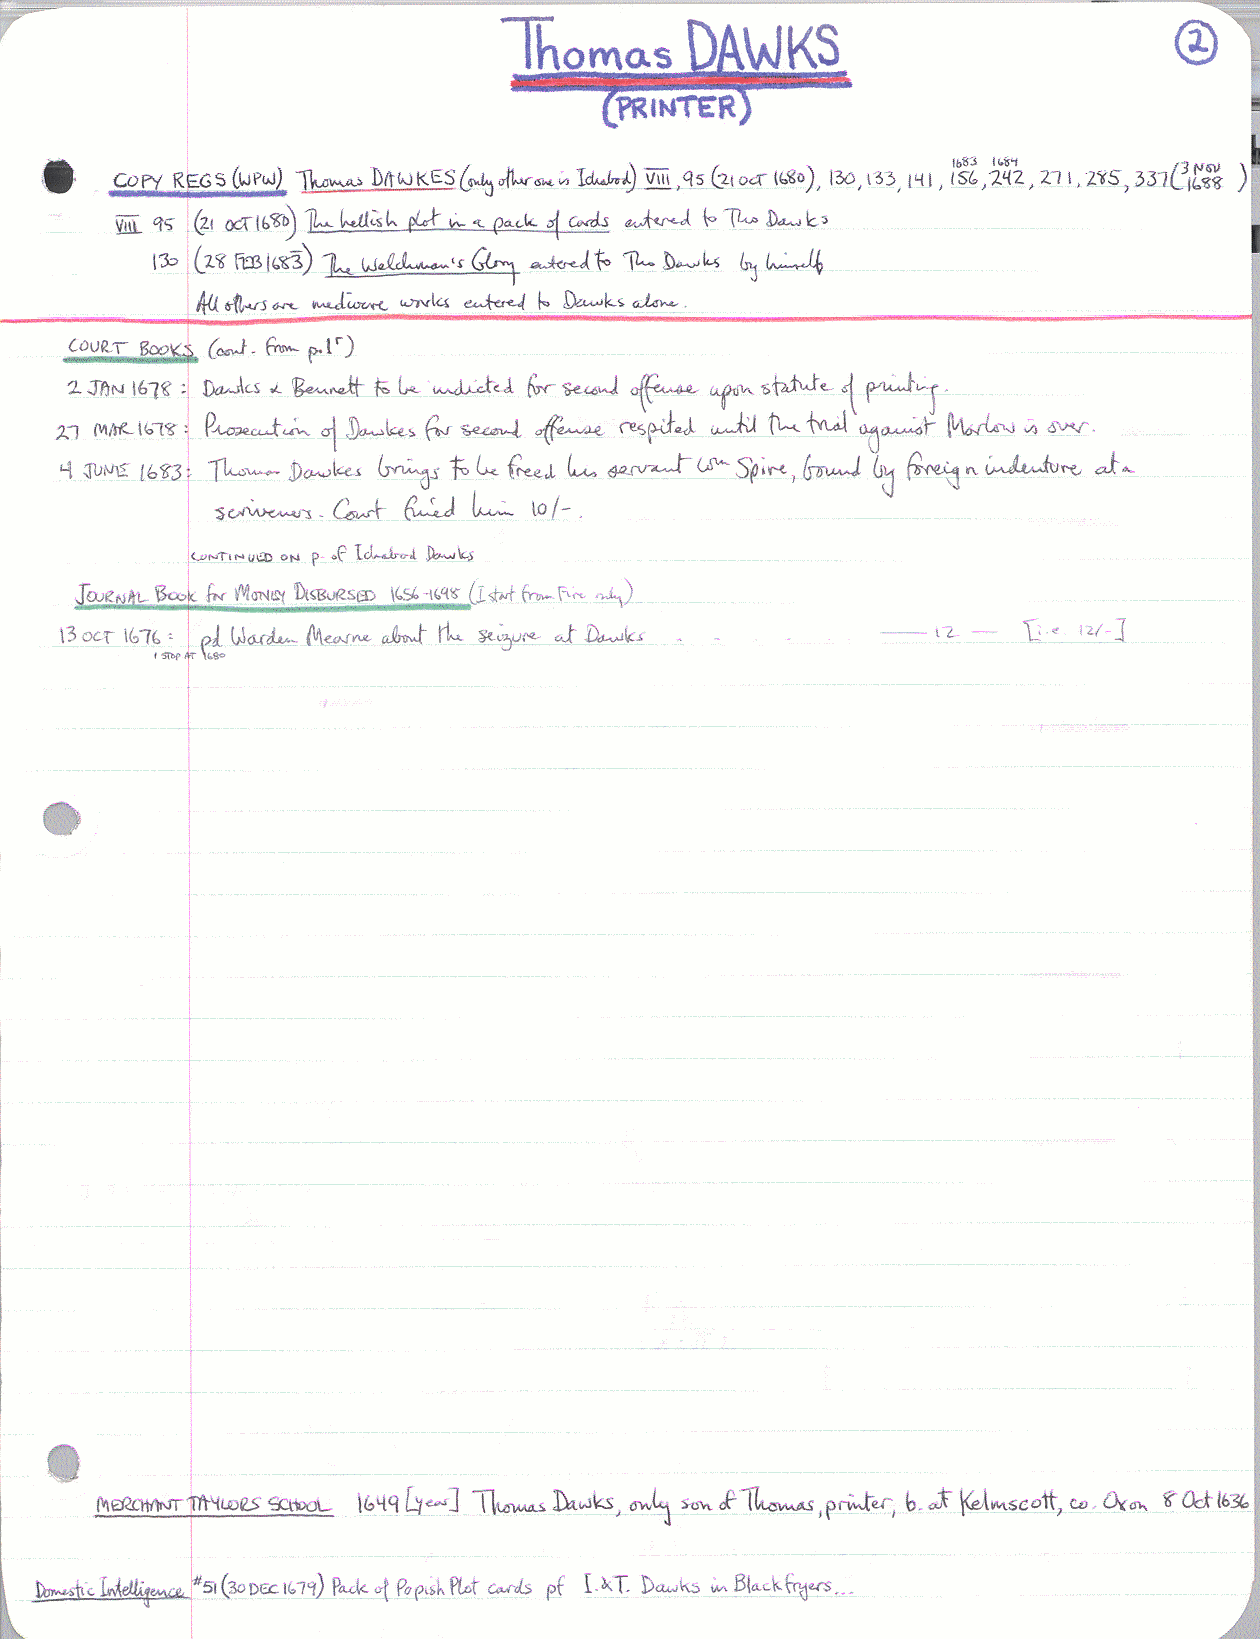 Thomas DAWKS
2
(PRINTER)
1683 1684
COPY REGS (WPW) Thomas DAWKES (only other one is Ichabod) VIII, 95 (21 OCT 1680), 130, 133, 141, 156, 242, 271, 285, 337 (3 NOV 1688)
VIII 95 (21 OCT 1680) The hellish plot in a pack of cards entered to Tho Dawks
130 (28 FEB 1683) The Welchman's Glory entered to Tho Dawks by himself
All others are mediocre works entered to Dawks alone.
COURT BOOKS (cont. from p.1r)
2 JAN 1678: Dawks & Bennett to be indicted for second offense upon statute of printing.
27 MAR 1678: Prosecution of Dawkes for second offense respited until the trial against Marlow is over.
4 JUNE 1683: Thomas Dawkes brings to be freed his servant Wm Spire, bound by foreign indenture at a
scriveners. Court fined him 10/-.
CONTINUED ON p. of Ichabod Dawks
JOURNAL BOOK for MONEY DISBURSED 1656-1698 (I start from Fire only)
13 OCT 1676: pd Warden Mearne about the seizure at Dawks - - - - — 12 — [i.e. 12/-]
I STOP AT 1680
MERCHANT TAYLORS SCHOOL 1649 [year] Thomas Dawks, only son of Thomas, printer, b. at Kelmscott, co. Oxon 8 Oct 1636
Domestic Intelligence #51 (30 DEC 1679) Pack of Popish Plot cards pf I. & T. Dawks in Blackfryers...